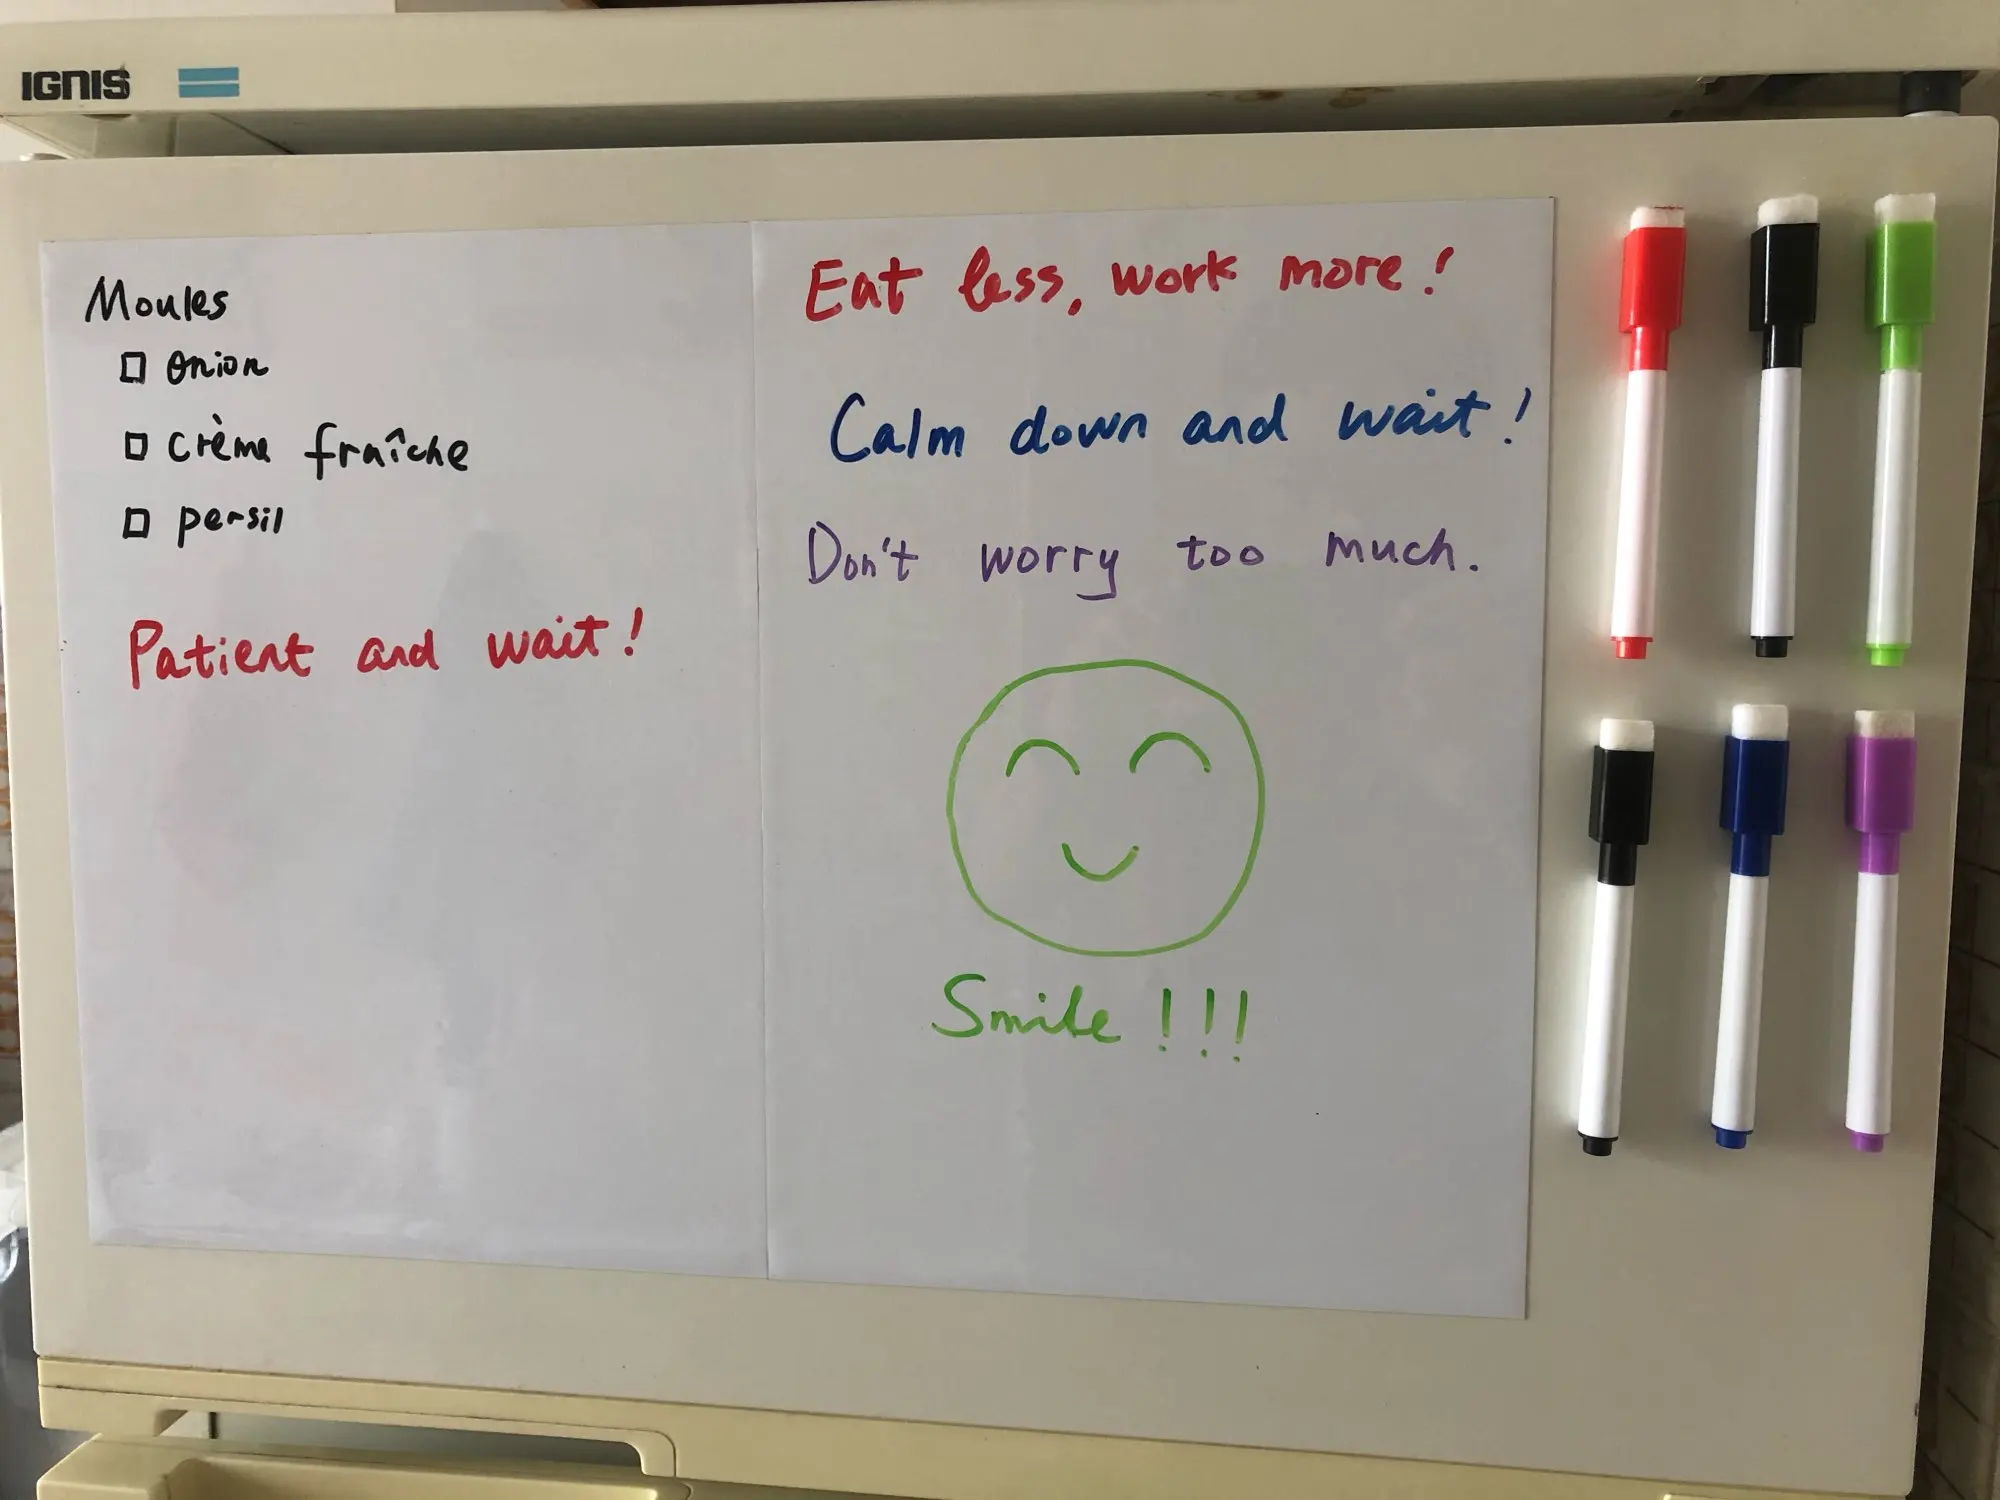 IGNIS
Moules
□ onion
□ crème fraîche
□ persil
Patient and wait!
Eat less, work more!
Calm down and wait!
Don't worry too much.
Smile!!!